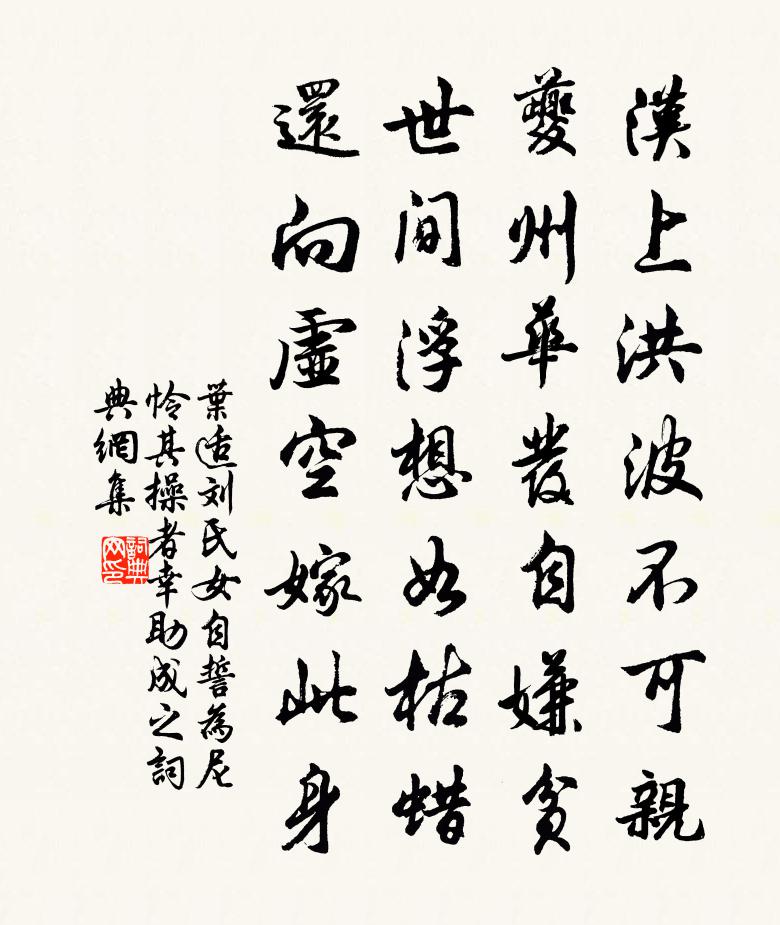 漢上洪波不可親
夔州華發自嫌貧
世間浮想如枯蜡
還向虛空嫁此身
葉适刘氏女自誓為尼
怜其操者幸助成之詞
典網集
詞典
网印